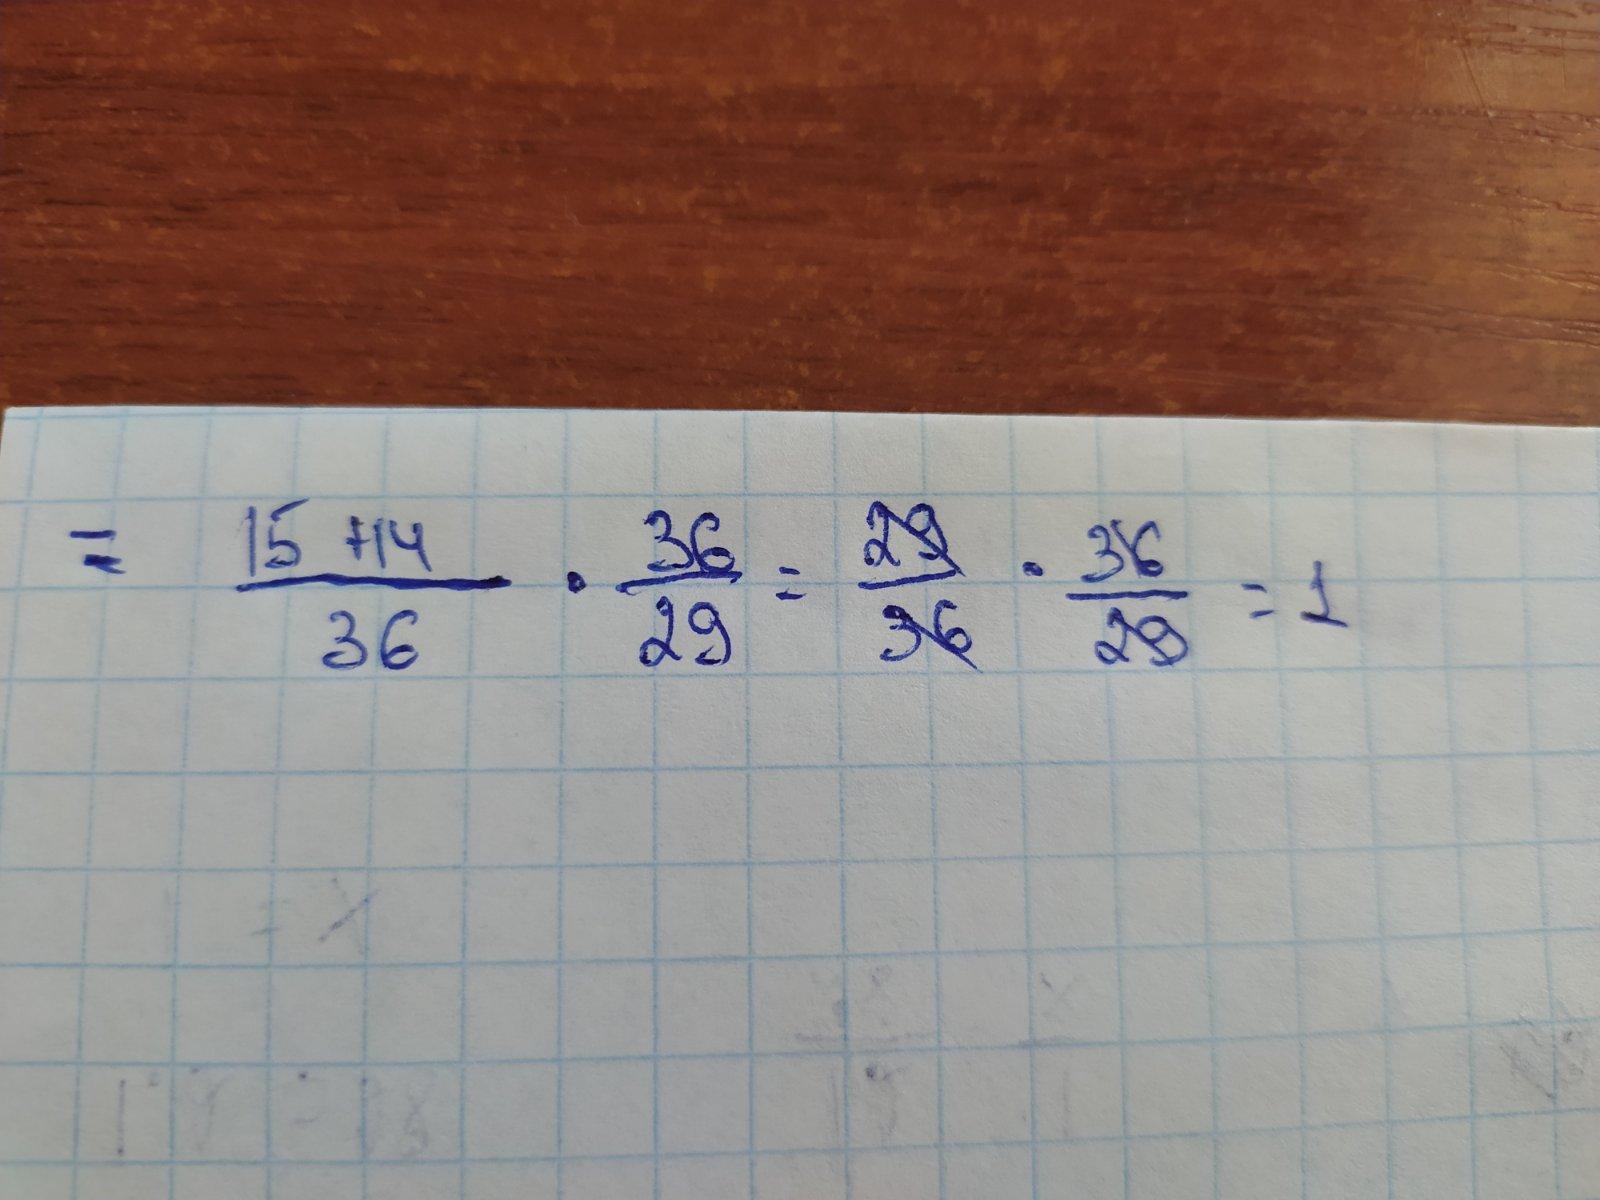 = 15 + 14 / 36 · 36 / 29 = 29 / 36 · 36 / 29 = 1